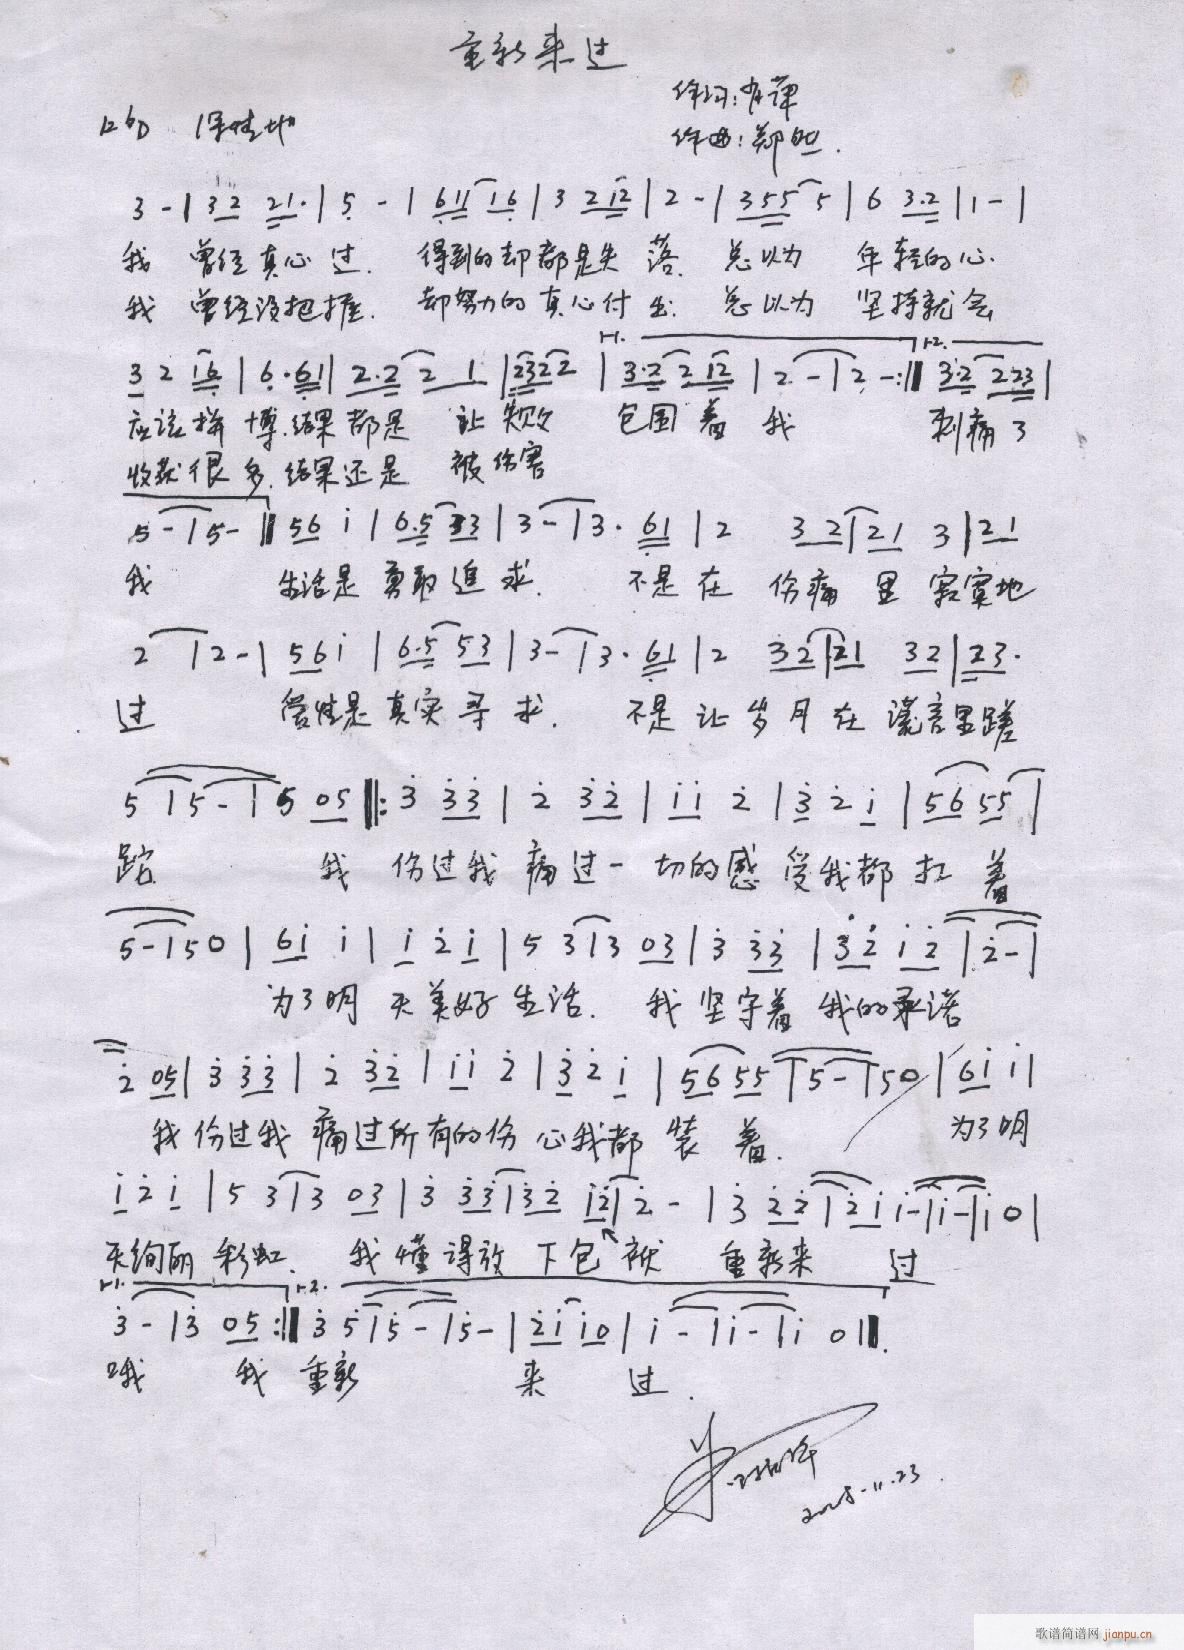 重新来过
作词:肖萍
作曲:郑旭.
深情地
3 - | 3 2 2 1· | 5 - | 6 1 1 1 6 | 3 2 1 2 | 2 - | 3 5 5 5 | 6 3·2 | 1 - |
我 曾经真心过. 得到的却都是失落. 总以为 年轻的心.
我 曾经没把握. 却努力的真心付出 总以为 坚持就会
3 2 1 6 | 6·6 1 | 2·2 2 1 | 2 3 2 2 | 3·2 2 1 2 | 2 - | 2 - :‖ 3·2 2 2 3 |
应该拼博.结果都是 让失败 包围着我 刺痛了
收获很多.结果还是 被伤害
5 - | 5 - ‖ 5 6 i | 6·5 3 3 | 3 - | 3· 6 1 | 2 3 2 | 2 1 3 | 2 1
我 生活是勇敢追求. 不是在伤痛里寂寞地
2 | 2 - | 5 6 i | 6·5 5 3 | 3 - | 3· 6 1 | 2 3 2 | 2 1 3 2 | 2 3·
过 爱情是真实寻求. 不是让岁月在谎言里蹉
5 | 5 - | 5 0 5 ‖: 3 3 3 | 2 3 2 | i i 2 | 3 2 i | 5 6 5 5 |
跎 我 伤过我 痛过一切的感受我都扛着
5 - | 5 0 | 6 i i | i 2 i | 5 3 | 3 0 3 | 3 3 3 | 3 2 i 2 | 2 - |
为了明天美好生活. 我坚守着我的承诺
2 0 5 | 3 3 3 | 2 3 2 | i i 2 | 3 2 i | 5 6 5 5 | 5 - | 5 0 | 6 i i |
我伤过我 痛过所有的伤心我都装着. 为了明
i 2 i | 5 3 | 3 0 3 | 3 3 3 | 3 2 i 2 | 2 - | 3 2 2 | 2 i i - | i - | i 0 |
天绚丽彩虹. 我懂得放下包袱 重新来过
3 - | 3 0 5 :‖ 3 5 | 5 - | 5 - | 2 i i 0 | i - | i - | i 0 ‖.
哦 我重新 来 过.
11.23
歌谱简谱网 jianpu.cn